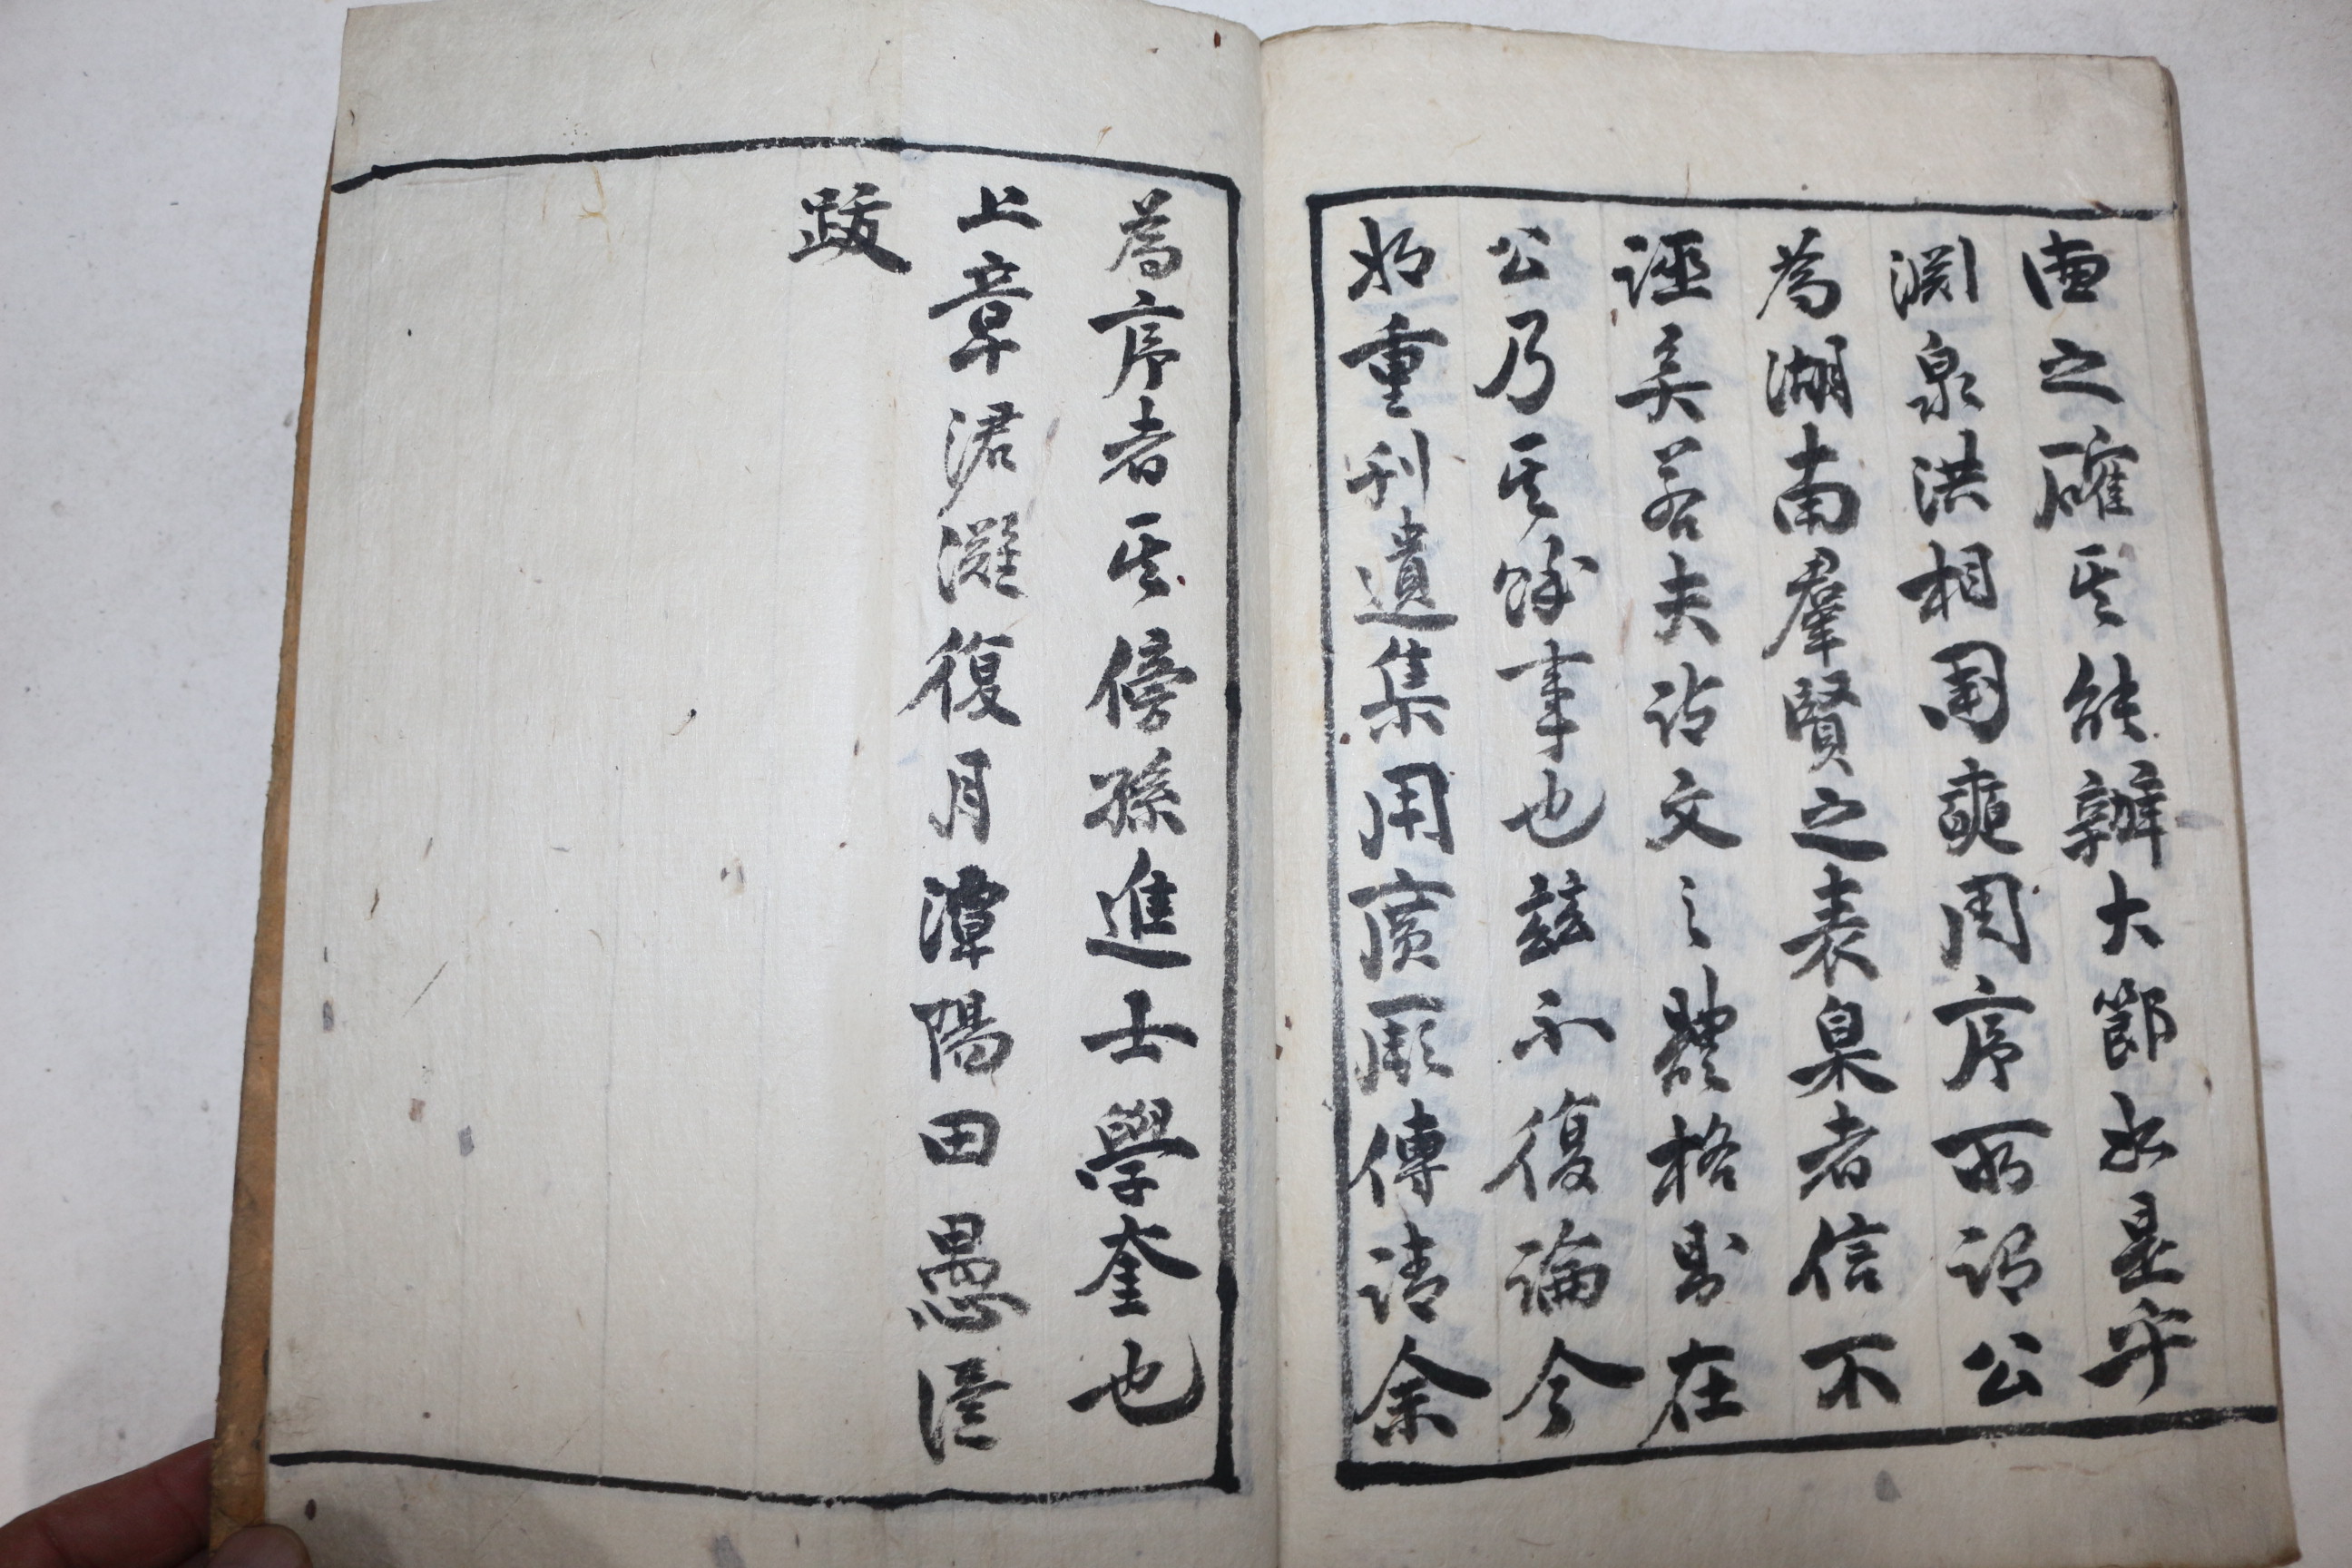 德之確其能辦大節如是乎
淵泉洪相國奭周序所謂公
為湖南羣賢之表臬者信不
誣矣若夫詩文之體格則在
公乃其餘事也玆不復論今
將重刊遺集用廣厥傳請余
為序者其傍孫進士學奎也
上章涒灘復月潭陽田愚謹
跋